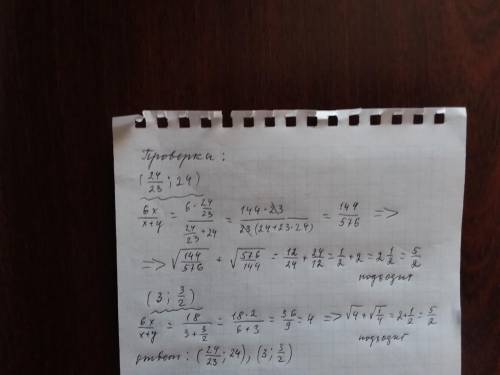 Проверка:
(24/23 ; 24)
6x/(x+y) = (6·24/23)/(24/23+24) = (144·23)/(23(24+23·24)) = 144/576 =>
=> √(144/576) + √(576/144) = 12/24 + 24/12 = 1/2 + 2 = 2 1/2 = 5/2
подходит
(3; 3/2)
6x/(x+y) = 18/(3+3/2) = (18·2)/(6+3) = 36/9 = 4 => √4 + √(1/4) = 2+1/2 = 5/2
подходит
ответ: (24/23; 24), (3; 3/2)